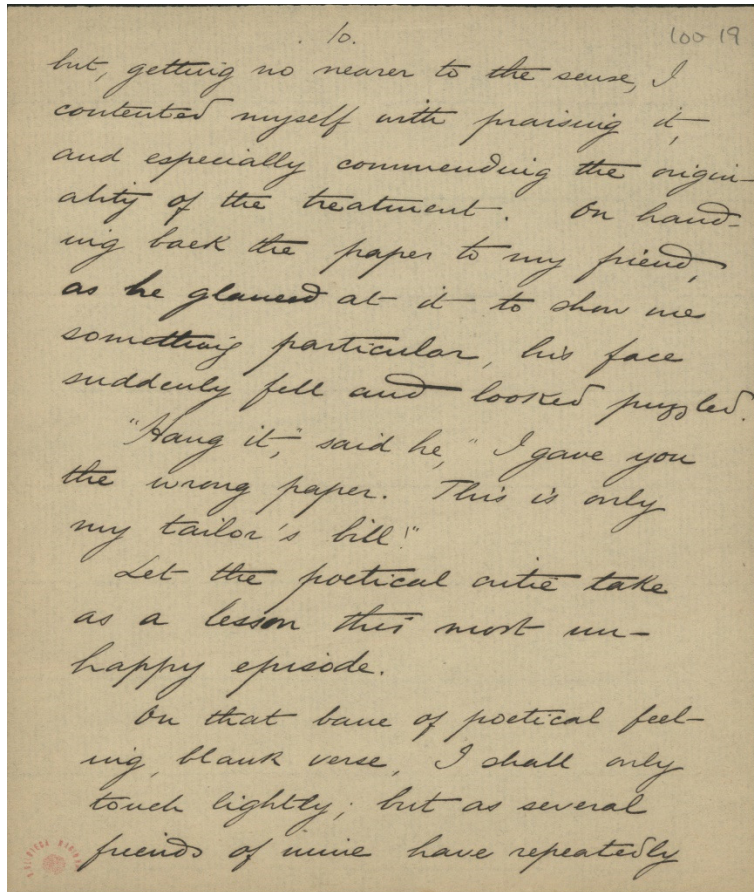 10.
100-19
but, getting no nearer to the sense, I
contented myself with praising it,
and especially commending the origin-
ality of the treatment. On hand-
ing back the paper to my friend,
as he glanced at it to show me
something particular, his face
suddenly fell and looked puzzled.
"Hang it," said he, "I gave you
the wrong paper. This is only
my tailor's bill!"
Let the poetical critic take
as a lesson this most un-
happy episode.
On that bane of poetical feel-
ing, blank verse, I shall only
touch lightly; but as several
friends of mine have repeatedly